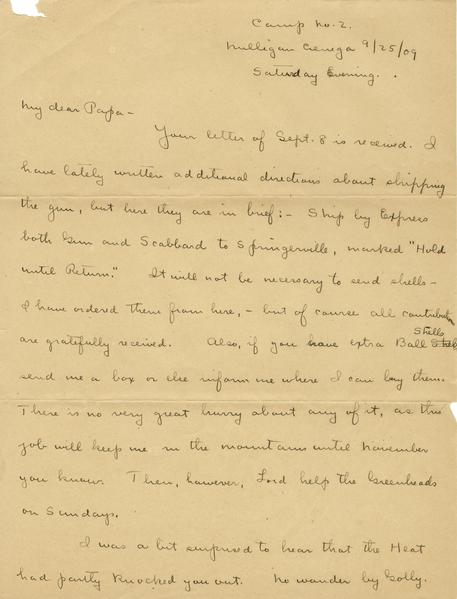 Camp No. 2.
Milligan Cienega 9/25/09
Saturday Evening.
My dear Papa -
Your letter of Sept. 8 is received. I
have lately written additional directions about shipping
the gun, but here they are in brief:- Ship by Express
both Gun and Scabbard to Springerville, marked "Hold
until Return." It will not be necessary to send shells -
I have ordered them from here, - but of course all contribution
are gratefully received. Also, if you have extra Ball Shells
send me a box or else inform me where I can buy them.
There is no very great hurry about any of it, as this
job will keep me in the mountains until November
you know. Then, however, Lord help the Greenheads
on Sundays.
I was a bit surprised to hear that the Heat
had partly knocked you out. No wonder by Golly.